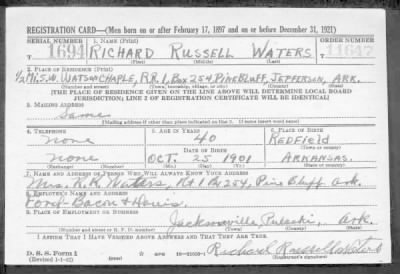 REGISTRATION CARD—(Men born on or after February 17, 1897 and on or before December 31, 1921)
SERIAL NUMBER 1. NAME (Print) ORDER NUMBER
T 1694 RICHARD RUSSELL WATERS 11647
(First) (Middle) (Last)
2. PLACE OF RESIDENCE (Print)
½ Mi. S.W. WATSON CHAPLE, R.R. 1, Box 254, PINE BLUFF, JEFFERSON, ARK.
(Number and street) (Town, township, village, or city) (County) (State)
[THE PLACE OF RESIDENCE GIVEN ON THE LINE ABOVE WILL DETERMINE LOCAL BOARD
JURISDICTION; LINE 2 OF REGISTRATION CERTIFICATE WILL BE IDENTICAL]
3. MAILING ADDRESS
Same
[Mailing address if other than place indicated on line 2. If same insert word same]
4. TELEPHONE 5. AGE IN YEARS 6. PLACE OF BIRTH
none 40 REDFIELD
DATE OF BIRTH (Town or county)
none OCT. 25 1901 ARKANSAS.
(Exchange) (Number) (Mo.) (Day) (Yr.) (State or country)
7. NAME AND ADDRESS OF PERSON WHO WILL ALWAYS KNOW YOUR ADDRESS
Mrs. R. R. Waters, Rt 1 Bx 254, Pine Bluff Ark.
8. EMPLOYER'S NAME AND ADDRESS
Ford-Bacon & Davis.
9. PLACE OF EMPLOYMENT OR BUSINESS
Jacksonville Pulaski, Ark.
(Number and street or R. F. D. number) (Town) (County) (State)
I AFFIRM THAT I HAVE VERIFIED ABOVE ANSWERS AND THAT THEY ARE TRUE.
D. S. S. Form 1
(Revised 1-1-42) (over) GPO 16—21630-1 Richard Russell Waters
(Registrant's signature)